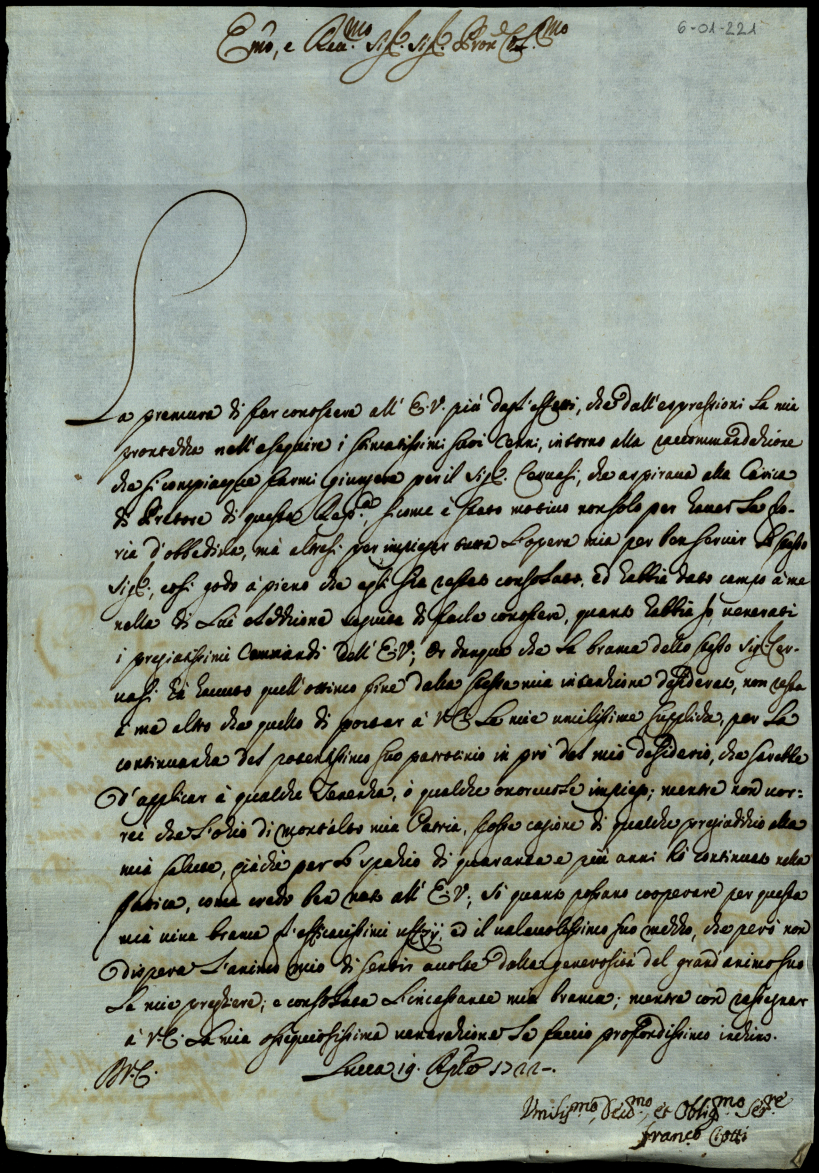 6-01-221
Em̃o, e Reu.mo Sig.r Sig.r Pron Col.mo
La premura di far conoscere all' E.V. più dagl'effetti, che dall'espressioni la mia
prontezza nell'eseguire i stimatissimi suoi Cenni, intorno alla raccommandazione
che si compiacque farmi giungere per il Sig.r Ceruasi, che aspiraua alla Carica
di Pretore di questa Rep.ca, sicome è stato motiuo non solo per hauer la glo-
ria d'obbedirla, mà altresì per impiegar tutta l'opera mia per ben seruir lo stesso
Sig.r, così godo à pieno che egli sia restato consolato, ed habbia dato campo à me
nella di Lui elezzione seguita di farle conoscere, quanto habbia Io venerati
i pregiatissimi Commandi dell' E.V; Or dunque che la brama dello stesso Sig.r Cer-
uasi hà hauuto quell'ottimo fine dalla stessa mia intenzione desiderato, non resta
à me altro che quello di portar à V.E. le mie umilissime suppliche, per la
continuanza del potentissimo suo patrocinio in prò del mio desiderio, che sarebbe
d'applicar à qualche Tenenza, ò qualche onoreuole impiego; mentre non vor-
rei che l'ozio di Montalto mia Patria, fosse cagione di qualche pregiudizio alla
mia salute, giàche per lo spazio di quaranta e più anni hò continuato nella
fatica, come credo ben noto all' E.V; Sò quanto possano cooperare per questa
mia viua brama gl'efficacissimi uffizij, ed il valeuolissimo suo mezzo, che però non
dispera l'animo mio di sentir accolte dalla generosità del grand'animo suo
le mie preghiere; e consolata l'incessante mia brama; mentre con rassegnar
à V.E. la mia ossequiosissima venerazione le faccio profondissimo inchino.
D.V.E. Lucca 19. Ag.to 1722.
Vmiliss.mo Deu.mo, et Oblig.mo Ser.re
Franc.o Ciotti